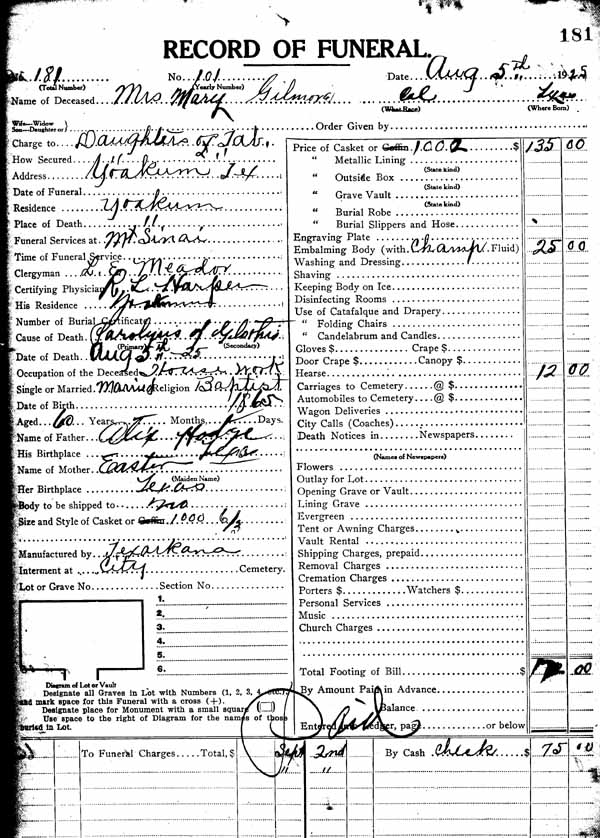 181
RECORD OF FUNERAL.
No. 181 No. 101 Date Aug 5th 1925
(Total Number) (Yearly Number)
Name of Deceased Mrs Mary Gilmore Col Texas
(What Race) (Where Born)
Wife—Widow
Son—Daughter or)
Order Given by
Charge to Daughters of Tab.
How Secured " "
Address Yoakum Tex
Date of Funeral
Residence Yoakum
Place of Death "
Funeral Services at Mt Sinai
Time of Funeral Service
Clergyman L. E. Meador
Certifying Physician R. L. Harper
His Residence Yoakum
Number of Burial Certificate
Cause of Death Paralysis of
(Primary) (Secondary)
Date of Death Aug 5th 25
Occupation of the Deceased House Work
Single or Married Married Religion Baptist
Date of Birth 1865
Aged 60 Years Months Days.
Name of Father Alix Hodge
His Birthplace Texas
Name of Mother Easter
(Maiden Name)
Her Birthplace Texas
Body to be shipped to no
Size and Style of Casket or Coffin 1000 6/3
Manufactured by Texarkana
Interment at City Cemetery.
Lot or Grave No. Section No.
1.
2.
3.
4.
5.
6.
Diagram of Lot or Vault
Designate all Graves in Lot with Numbers (1, 2, 3, 4, etc.)
and mark space for this Funeral with a cross (+).
Designate place for Monument with a small square
Use space to the right of Diagram for the names of those
buried in Lot.
Price of Casket or Coffin 1000 $ 135 00
" Metallic Lining
(State kind)
" Outside Box
(State kind)
" Grave Vault
(State kind)
" Burial Robe
" Burial Slippers and Hose
Engraving Plate
Embalming Body (with Champ Fluid) 25 00
Washing and Dressing
Shaving
Keeping Body on Ice
Disinfecting Rooms
Use of Catafalque and Drapery
" Folding Chairs
" Candelabrum and Candles
Gloves $ Crape $
Door Crape $ Canopy $
Hearse 12 00
Carriages to Cemetery @ $
Automobiles to Cemetery @ $
Wagon Deliveries
City Calls (Coaches)
Death Notices in Newspapers
(Names of Newspapers)
Flowers
Outlay for Lot
Opening Grave or Vault
Lining Grave
Evergreen
Tent or Awning Charges
Vault Rental
Shipping Charges, prepaid
Removal Charges
Cremation Charges
Porters $ Watchers $
Personal Services
Music
Church Charges
Total Footing of Bill $ 172 00
By Amount Paid in Advance
Balance
Entered into Ledger, page or below
Paid
To Funeral Charges Total, $ Sept 2nd By Cash Check $ 75 00
" "